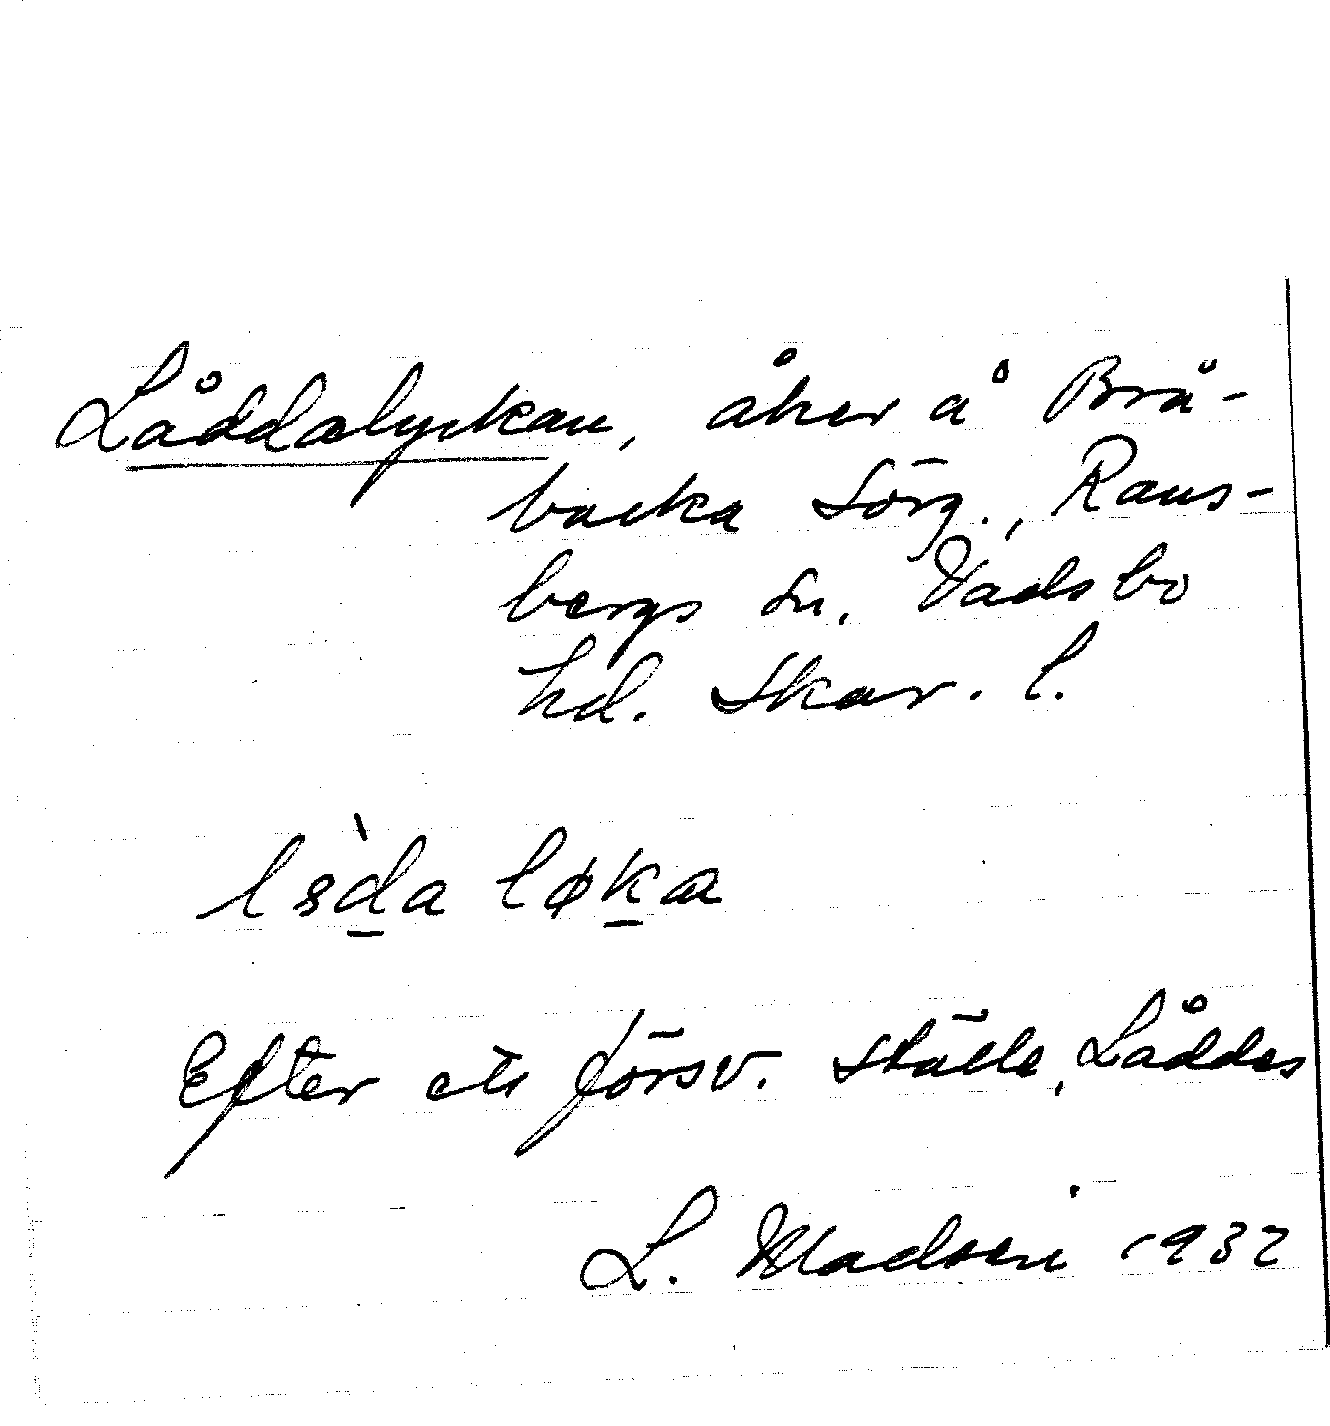 Låddalyckan, åker å Brå-
backa Sörg., Rans-
bergs sn. Vadsbo
hd. Skar. l.
Efter ett försv. ställe, Låddas
L. Madsen 1932